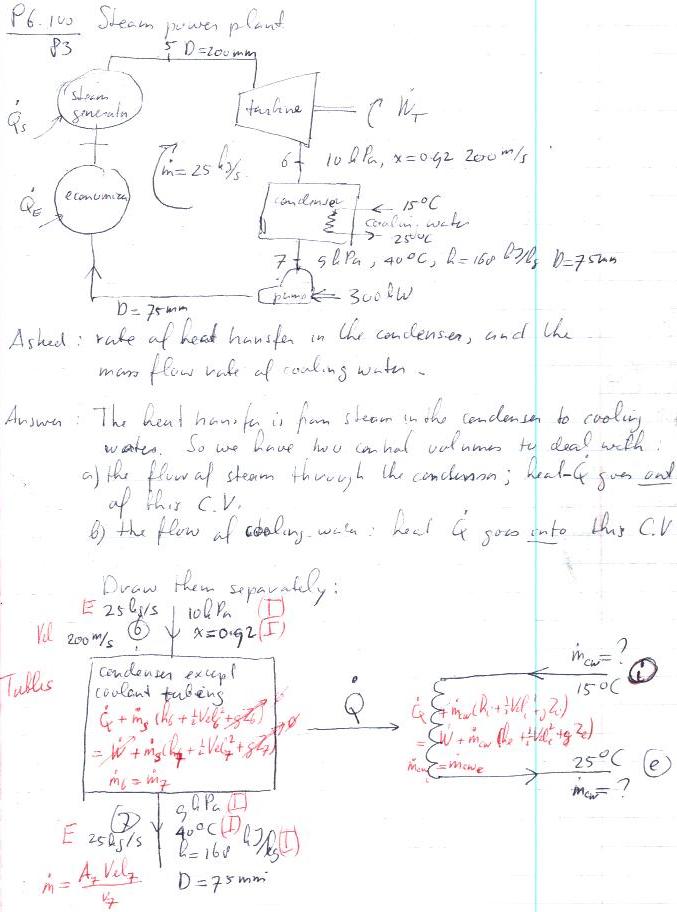 P6.100 Steam power plant
83
5 D=200mm
steam
generator
turbine
Q̇s
Ẇ_T
ṁ = 25 kg/s
6 10 kPa, x=0.92 200 m/s
Q̇_E
economizer
condenser
15°C
cooling water
25°C
7 9 kPa, 40°C, h=168 kJ/kg D=75mm
pump 300 kW
D=75mm
Asked: rate of heat transfer in the condenser, and the
mass flow rate of cooling water.
Answer: The heat transfer is from steam in the condenser to cooling
water. So we have two control volumes to deal with:
a) the flow of steam through the condenser; heat Q̇ goes out
of this C.V.
b) the flow of cooling water: heat Q̇ goes into this C.V
Draw them separately:
E 25 kg/s 10 kPa (I)
Vel 200 m/s 6 x=0.92 (I)
Tables
condenser except
coolant tubing
Q̇ + ṁ_s (h₆ + ½Vel₆² + gZ₆)
= Ẇ + ṁ_s (h₇ + ½Vel₇² + gZ₇)
ṁ₆ = ṁ₇
Q̇
ṁ_cw = ?
15°C i
Q̇ + ṁ_cw (h_i + ½Vel_i² + gZ_i)
= Ẇ + ṁ_cw (h_e + ½Vel_e² + gZ_e)
ṁ_cw_i = ṁ_cw_e
25°C e
ṁ_cw = ?
7 9 kPa (I)
E 25 kg/s 40°C (I)
h=168 kJ/kg (I)
ṁ = A₇ Vel₇ / v₇
D=75mm